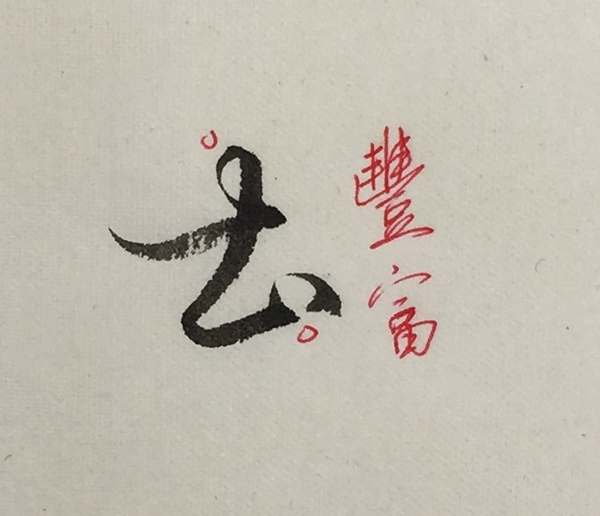 去
豐富